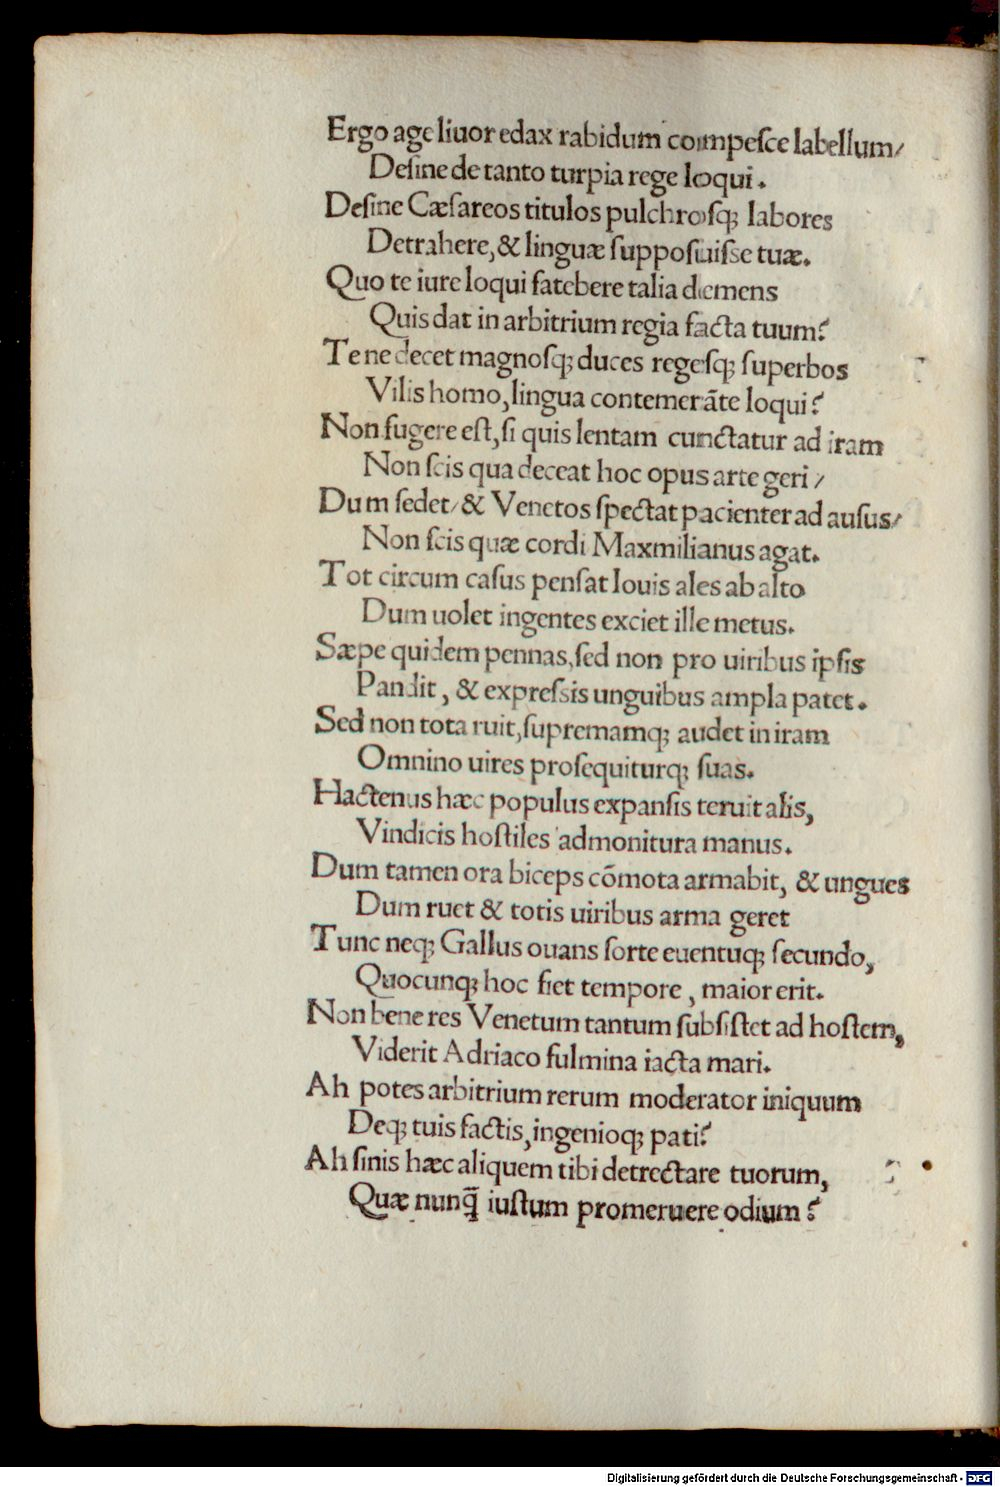 Ergo age liuor edax rabidum compesce labellum/
Desine de tanto turpia rege loqui.
Desine Cæsareos titulos pulchrosq; labores
Detrahere, & linguæ supposuisse tuæ.
Quo te iure loqui fatebere talia demens
Quis dat in arbitrium regia facta tuum?
Te ne decet magnosq; duces regesq; superbos
Vilis homo, lingua contemerāte loqui?
Non fugere est, si quis lentam cunctatur ad iram
Non scis qua deceat hoc opus arte geri /
Dum sedet/ & Venetos spectat pacienter ad ausus/
Non scis quæ cordi Maxmilianus agat.
Tot circum casus pensat Iouis ales ab alto
Dum uolet ingentes exciet ille metus.
Sæpe quidem pennas, sed non pro uiribus ipsis
Pandit, & expressis unguibus ampla patet.
Sed non tota ruit, supremamq; audet in iram
Omnino uires prosequiturq; suas.
Hactenus hæc populus expansis teruit alis,
Vindicis hostiles admonitura manus.
Dum tamen ora biceps cōmota armabit, & ungues
Dum ruet & totis uiribus arma geret
Tunc neq; Gallus ouans sorte euentuq; secundo,
Quocunq; hoc fiet tempore, maior erit.
Non bene res Venetum tantum subsistet ad hostem,
Viderit Adriaco fulmina iacta mari.
Ah potes arbitrium rerum moderator iniquum
Deq; tuis factis, ingenioq; pati?
Ah sinis hæc aliquem tibi detrectare tuorum,
Quæ nunq̄ iustum promeruere odium?
Digitalisierung gefördert durch die Deutsche Forschungsgemeinschaft - DFG